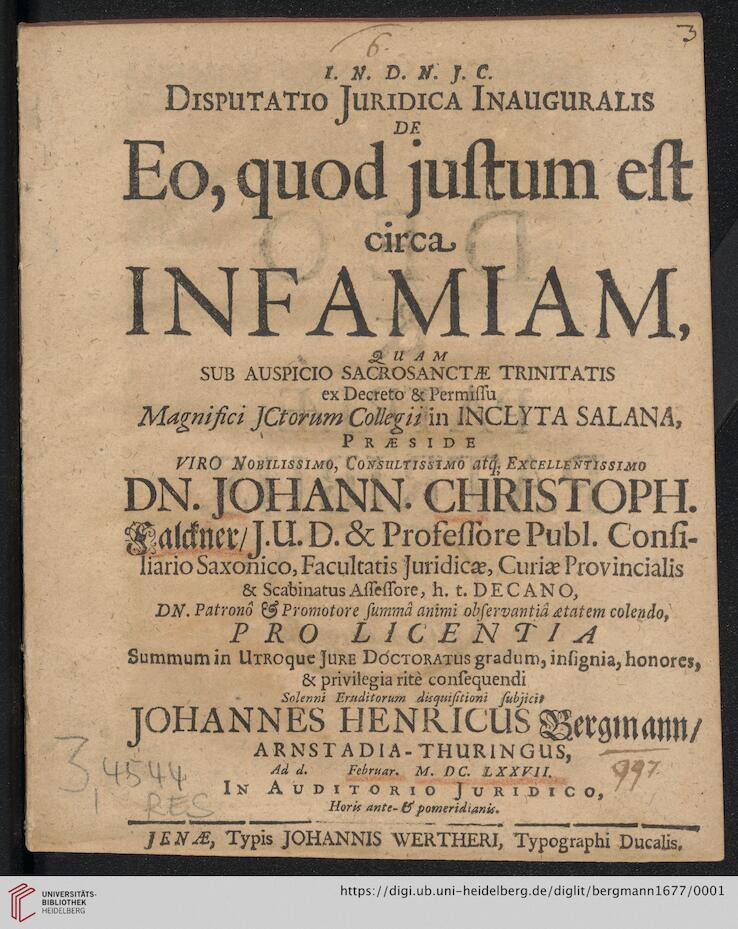 6.
3
I. N. D. N. J. C.
DISPUTATIO JURIDICA INAUGURALIS
DE
Eo, quod juſtum eſt
circa
INFAMIAM,
QUAM
SUB AUSPICIO SACROSANCTÆ TRINITATIS
ex Decreto & Permiſſu
Magnifici JCtorum Collegii in INCLYTA SALANA,
PRÆSIDE
VIRO NOBILISSIMO, CONSULTISSIMO atq; EXCELLENTISSIMO
DN. JOHANN. CHRISTOPH.
Falckner/ J.U.D. & Profeſſore Publ. Conſi-
liario Saxonico, Facultatis Juridicæ, Curiæ Provincialis
& Scabinatus Aſſeſſore, h. t. DECANO,
DN. Patronô & Promotore ſummâ animi obſervantiâ ætatem colendo,
PRO LICENTIA
Summum in UTROque JURE DOCTORATUS gradum, inſignia, honores,
& privilegia ritè conſequendi
Solenni Eruditorum diſquiſitioni ſubjicit
JOHANNES HENRICUS Bergmann/
ARNSTADIA-THURINGUS,
Ad d. Februar. M. DC. LXXVII.
IN AUDITORIO JURIDICO,
Horis ante- & pomeridianis.
3, 4544
1 RES
997.
JENÆ, Typis JOHANNIS WERTHERI, Typographi Ducalis.
UNIVERSITÄTS-
BIBLIOTHEK
HEIDELBERG
https://digi.ub.uni-heidelberg.de/diglit/bergmann1677/0001